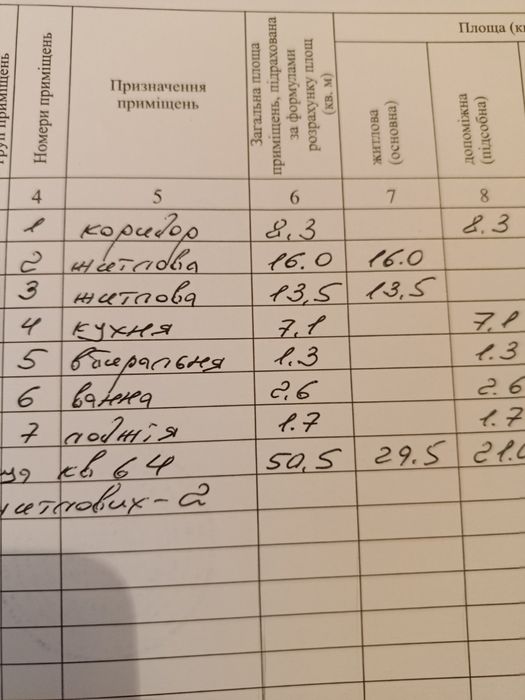 Площа (к
груп приміщень
Номери приміщень
Призначення приміщень
Загальна площа приміщень, підрахована за формулами розрахунку площ (кв. м)
житлова (основна)
допоміжна (підсобна)
4 5 6 7 8
1 коридор 8,3 8.3
2 житлова 16.0 16.0
3 житлова 13,5 13,5
4 кухня 7,1 7,1
5 вбиральня 1.3 1.3
6 ванна 2,6 2.6
7 лоджія 1.7 1.7
кв 64 50,5 29.5 21.0
житлових - 2